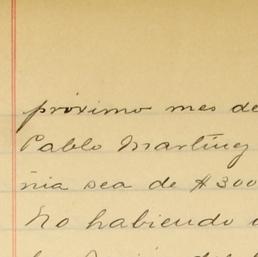 próximo mes de
Pablo Martínez
ñia sea de $300
No habiendo